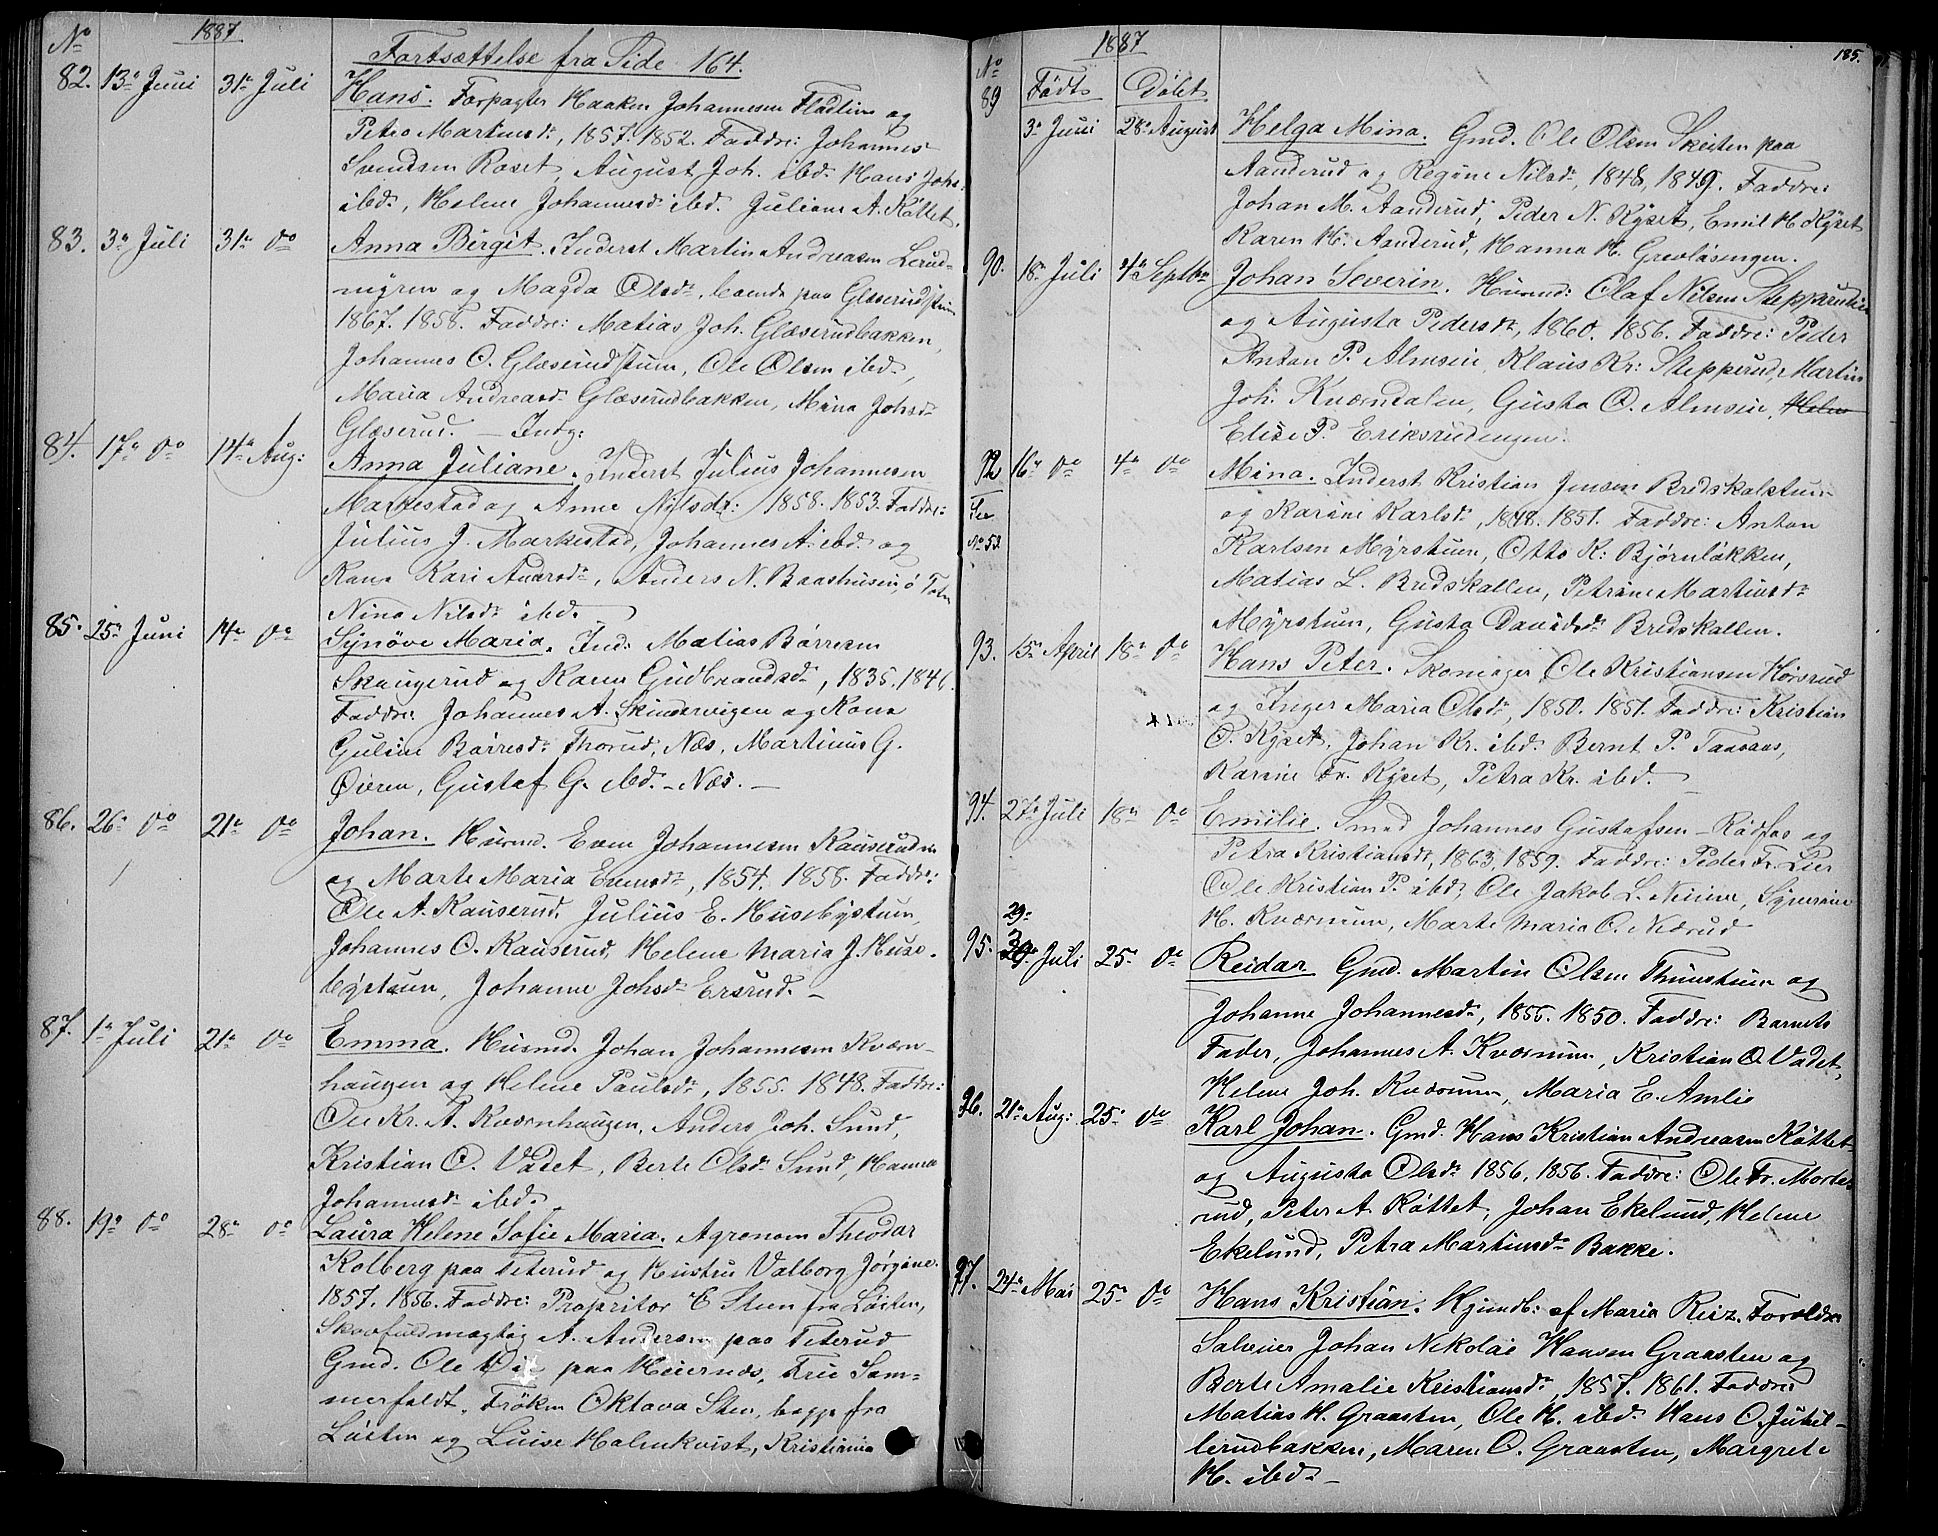 No 1887
Fortsættelse fra Side 164.
82. 13de Juni 31te Juli Hans. Forpagter Haaken Johannesen Fladlien og
Petra Martinsdr, 1857. 1852. Faddre: Johannes
Svendsen Roset, August Joh. ibd. Hans Johs.
ibd., Helene Johannesdr ibd. Juliane A. Røttet.
83. 3de Juli 31te Do Anna Birgit. Inderst Martin Andreasen Lerud-
nigren og Magda Olsdr, boende paa Glæserudstuen
1867. 1858. Faddre: Matias Joh. Glæserudbakken,
Johannes O. Glæserudstuen, Ole Olsen ibd.,
Maria Andreasdr Glæserudbakken, Mina Johsdr
Glæserud. — Indg:
84. 17de Do 14de Aug: Anna Juliane. Inderst Julius Johannesen
Markestad og Anne Nilsdr: 1858. 1853. Faddre:
Julius J. Markestad, Johannes A. ibd. og
Kona Kari Andersdr, Anders N. Baashusein, Ø Toten
Nina Nilsdr ibd.
85. 25de Juni 14de Do Synøve Maria. Ind: Matias Børresen
Skaugerud og Karen Gudbrandsdr, 1835. 1846.
Faddre: Johannes A. Skindervigen og Kona
Guline Børresdr Thorud, Næs, Martinus G.
Øieren, Gustaf G. ibd. - Næs. —
86. 26de Do 21de Do Johan. Husmd. Even Johannesen Rauserudeie
og Marte Maria Evensdr, 1854. 1858. Faddre:
Ole A. Rauserud, Julius E. Husebystuen
Johannes O. Rauserud, Helene Maria J. Huse-
bystuen, Johanne Johsdr Ersrud. —
87. 1ste Juli 21de Do Emma. Husmd. Johan Johannesen Kværn-
haugen og Helene Paulsdr, 1855. 1848. Faddre:
Ole Kr. A. Kværnhaugen, Anders Joh. Sund,
Kristian O. Vadet, Berte Olsdr Sund, Hanna
Johannesdr ibd.
88. 19de Do 28de Do Laura Helene Sofie Maria. Agronom Theodor
Kolberg paa Teterud og Hustru Valborg Jørgine.
1857. 1856. Faddre: Propritær E Steen fra Løiten,
Skovfuldmægtig A. Andersen paa Teterud
Gmd. Ole paa Heiernæs, Frue Som-
merfeldt, Frøken Oktava Steen, begge fra
Løiten og Luise Holmkvist, Kristiania
1887 185.
No Født Døbt
89 3de Juni 28de August Helga Mina. Gmd. Ole Olsen Skeisten paa
Aanderud og Regine Nilsdr, 1848, 1849. Faddre:
Johan M. Aanderud, Peder N. Kyset, Emil H Kyset
Karen H. Aanderud, Hanna H. Grevlösengen.
90. 18de Juli 4de Septbr Johan Severin. Husmd: Olaf Nilsen Stepperudeie
og Augusta Pedersdr, 1860. 1856. Faddre: Peder
Anton P. Almseie, Klaus Kr: Stepperud, Martin
Joh. Kværndalen, Gusta O. Almseie,
Elise P. Eriksrudengen.
92 16de Do 4de Do Mina. Inderst Kristian Jensen Bredskalstuen
See
No 53.
og Karine Karlsdr, 1848. 1851. Faddre: Anton
Karlsen Myrstuen, Otto K: Bjørnløkken,
Matias L. Bredskallen, Petrine Martinsdr
Myrstuen, Gusta Davidsdr Bredskallen.
93. 15de April 18de Do Hans Peter. Skomager Ole Kristiansen Hørsrud
og Inger Maria Olsdr, 1850. 1851. Faddre: Kristian
O. Kyset, Johan Kr. ibd. Bernt P. Taaraas,
Karine Fr. Kyset, Petra Kr. ibd.
94. 27de Juli 18de Do Emilie. Smed Johannes Gustafsen - Rødfos og
Petra Kristiansdr, 1863, 1859. Faddre: Peder Fr. Lier
Ole Kristian P. ibd, Ole Jakob L. Niune, Synerine
H. Kværnum, Marte Maria O. Nærud
29de
95. Juli 25de Do Reidar. Gmd. Martin Olsen Thunstuen og
Johanne Johannesdr, 1855. 1850. Faddre: Barnets
Fader, Johannes A. Kværnum, Kristian O. Vadet,
Helene Joh. Kværnum, Maria E. Amlie
96. 21de Aug: 25de Do Karl Johan. Gmd. Hans Kristian Andreasen Røttet
og Augusta Olsdr 1856, 1856. Faddre: Ole Fr. Morte-
rud, Peter A. Røttet, Johan Ekelund, Helene
Ekelund, Petra Martinsdr Bakke.
97. 24de Mai 25de Do Hans Kristian. Hjemdb: af Maria Reiz. Foreldre
Salveier Johan Nikolai Hansen Graasten og
Berte Amalie Kristiansdr, 1857. 1861. Faddre:
Matias H. Graasten, Ole H. ibd. Hans O. Juhil-
lerudbakken, Maren O. Graasten, Margrete
H. ibd. —